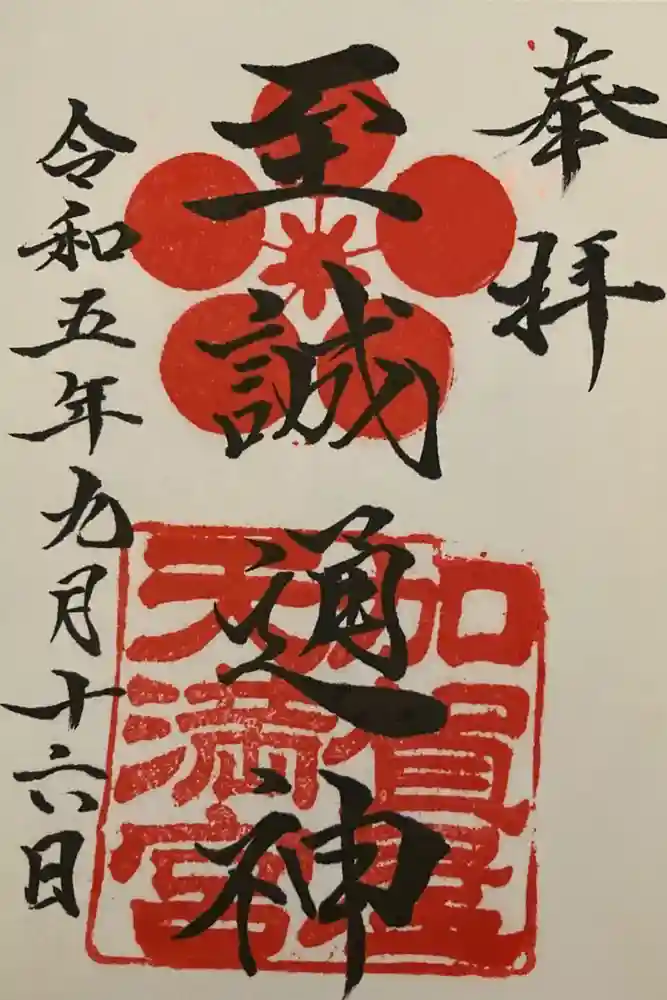 奉拝
至誠通神
加賀星
天満宮
令和五年九月十六日